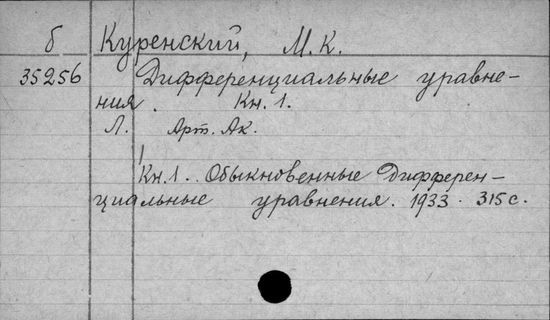 б Куренский, М.К.
35256 Дифференциальные уравне-
ния. Кн. 1.
Л. Арт. Ак.
Кн. 1. Обыкновенные Дифферен-
циальные уравнения. 1933. 315 с.